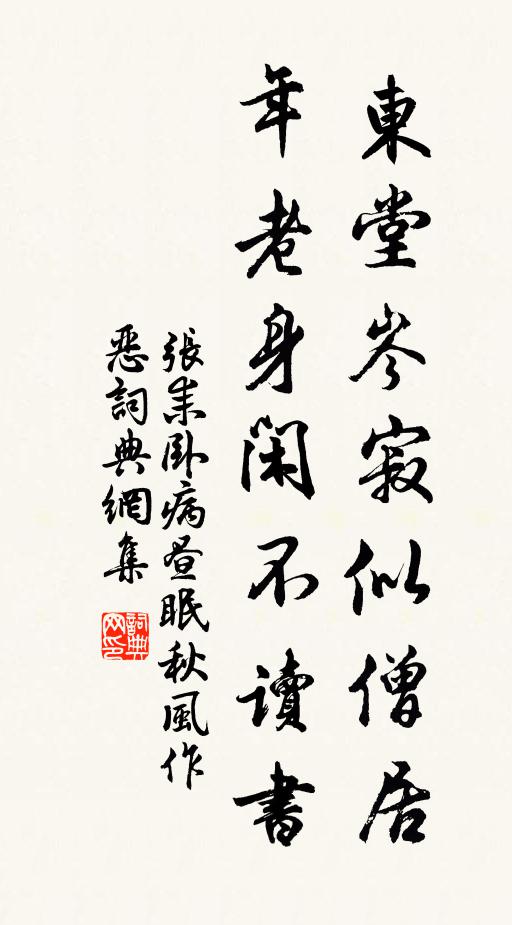 東堂岑寂似僧居
年老身閑不讀書
張耒臥病昼眠秋風作
惡詞典網集
詞典网印